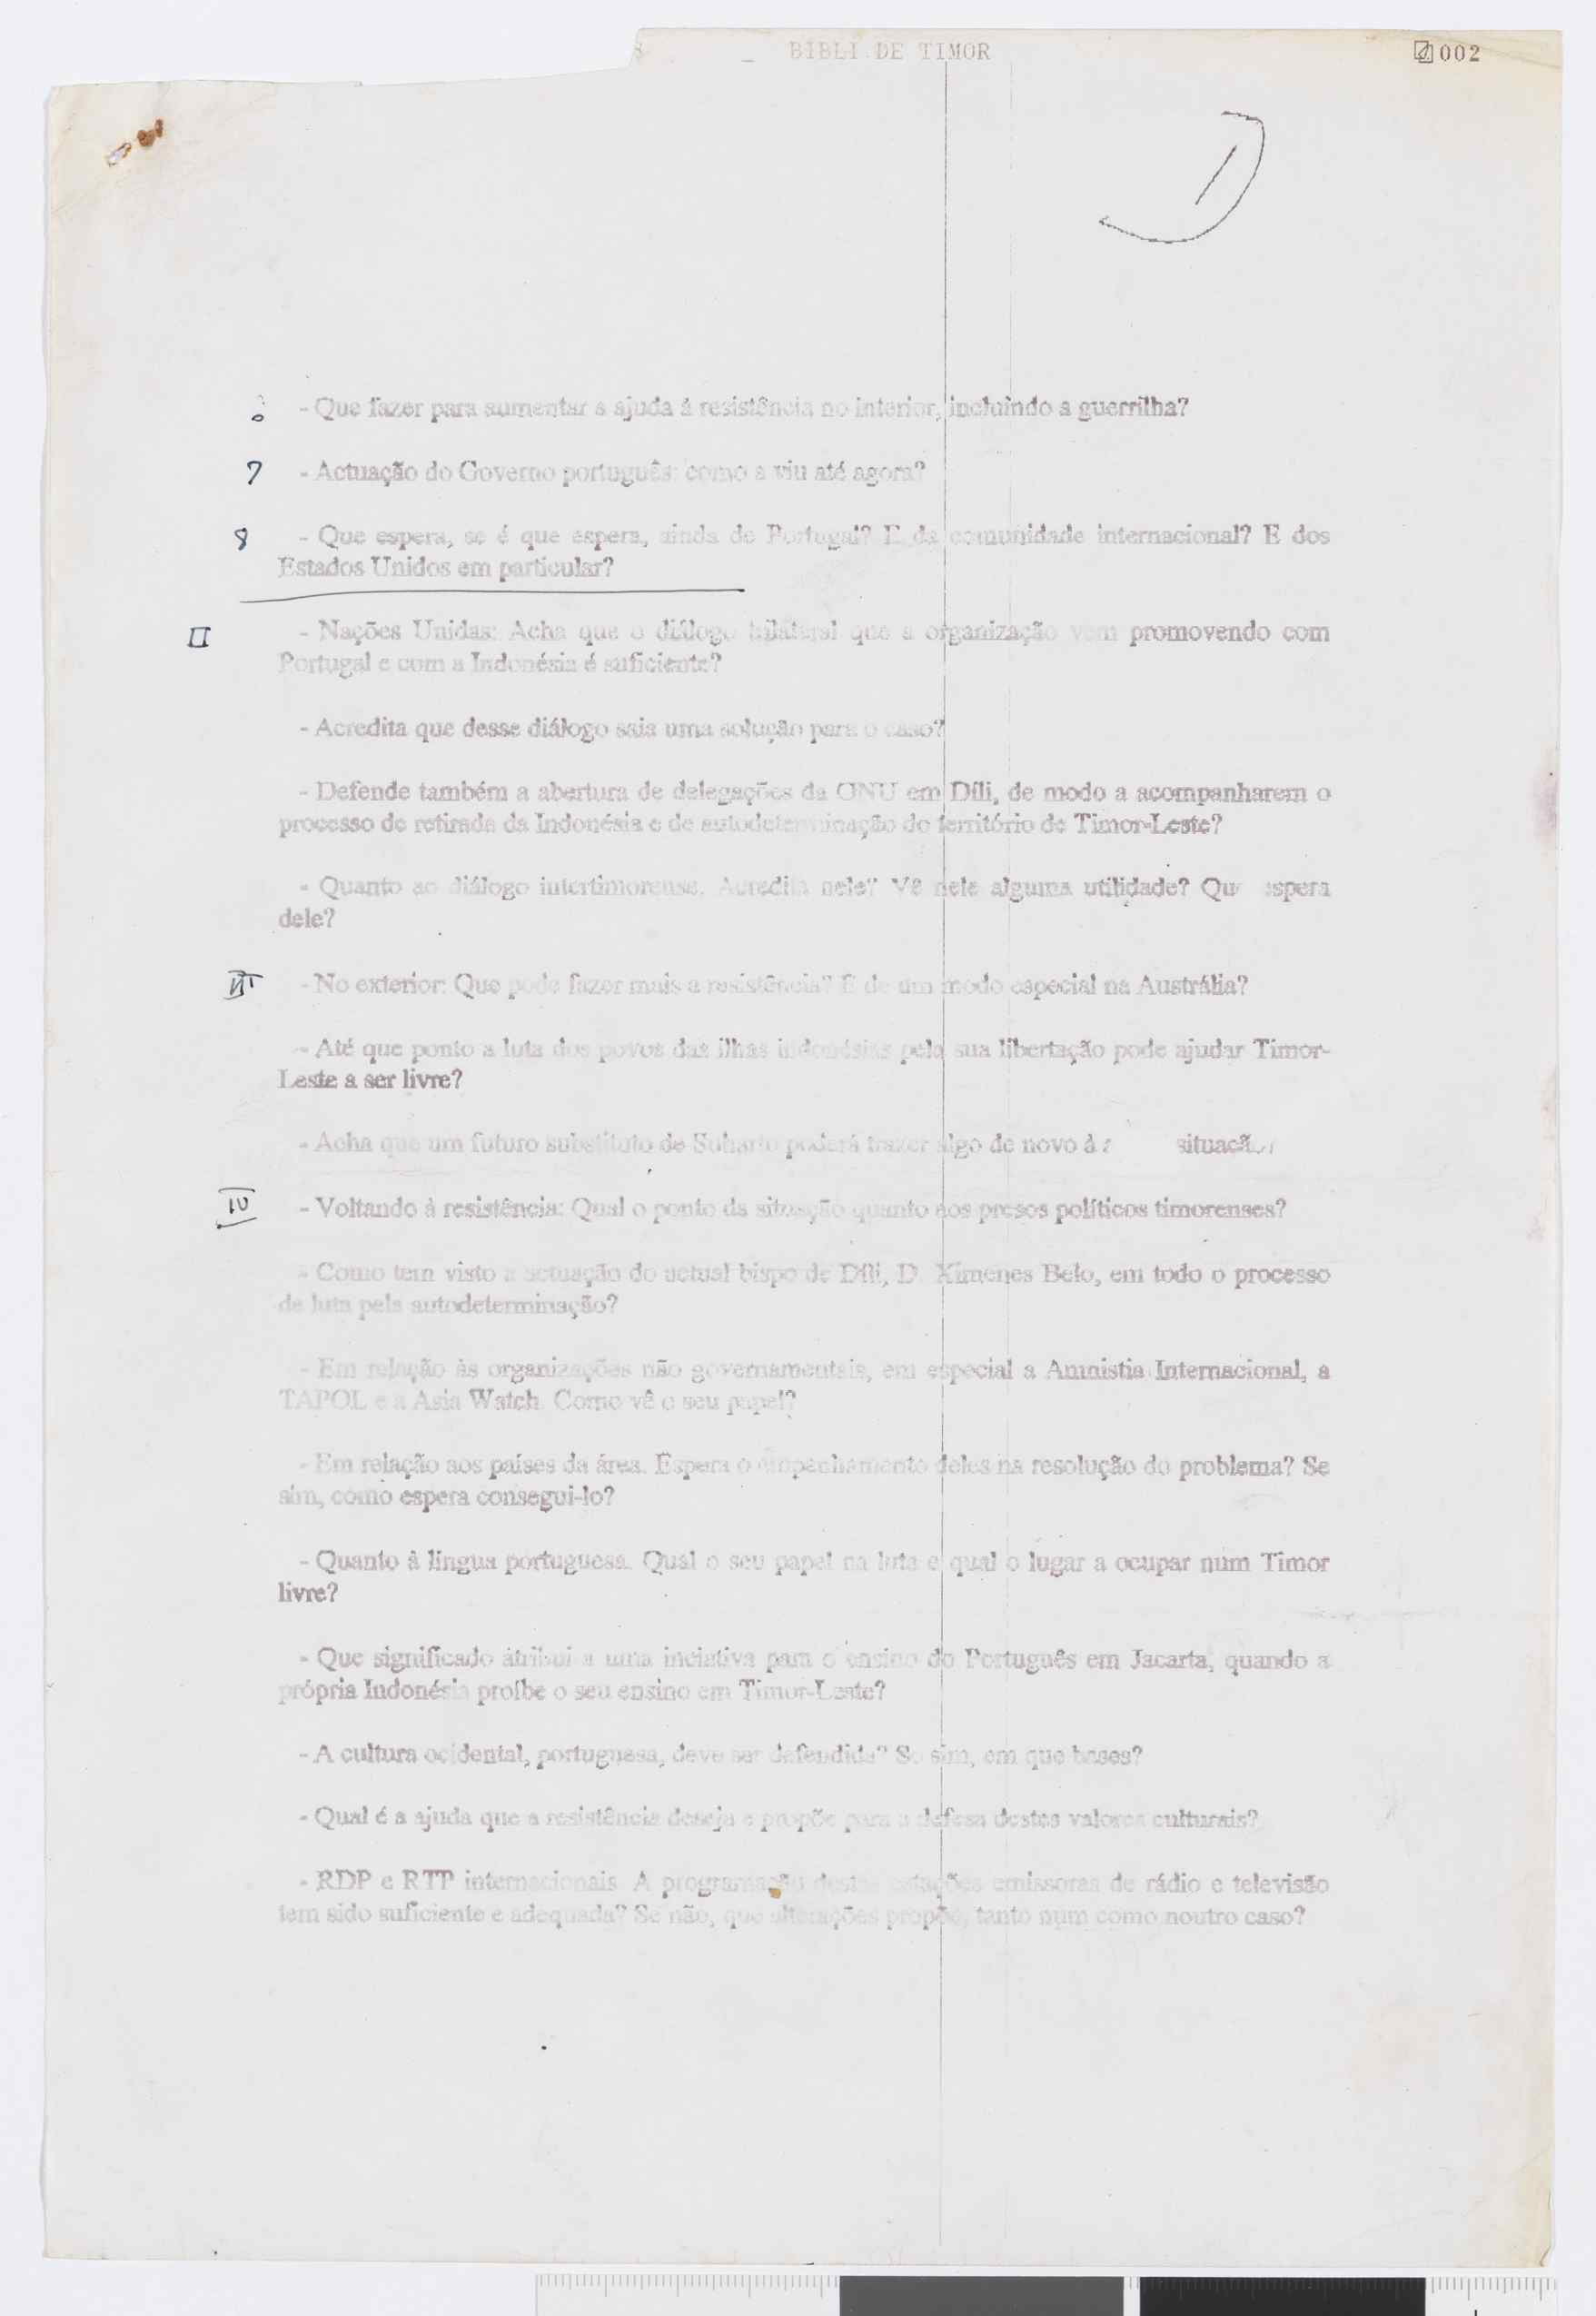 BIBLI DE TIMOR 002
- Que fazer para aumentar a ajuda à resistência no interior, incluindo a guerrilha?
7 - Actuação do Governo português: como a viu até agora?
8 - Que espera, se é que espera, ainda de Portugal? E da comunidade internacional? E dos
Estados Unidos em particular?
II - Nações Unidas: Acha que o diálogo bilateral que a organização vem promovendo com
Portugal e com a Indonésia é suficiente?
- Acredita que desse diálogo saia uma solução para o caso?
- Defende também a abertura de delegações da ONU em Díli, de modo a acompanharem o
processo de retirada da Indonésia e de autodeterminação do território de Timor-Leste?
- Quanto ao diálogo intertimorense. Acredita nele? Vê nele alguma utilidade? Que espera
dele?
III - No exterior: Que pode fazer mais a resistência? E de um modo especial na Austrália?
- Até que ponto a luta dos povos das ilhas indonésias pela sua libertação pode ajudar Timor-
Leste a ser livre?
- Acha que um futuro substituto de Suharto poderá trazer algo de novo à situação
IV - Voltando à resistência: Qual o ponto da situação quanto aos presos políticos timorenses?
- Como tem visto a actuação do actual bispo de Díli, D. Ximenes Belo, em todo o processo
de luta pela autodeterminação?
- Em relação às organizações não governamentais, em especial a Amnistia Internacional, a
TAPOL e a Asia Watch. Como vê o seu papel?
- Em relação aos países da área. Espera o empenhamento deles na resolução do problema? Se
sim, como espera consegui-lo?
- Quanto à língua portuguesa. Qual o seu papel na luta e qual o lugar a ocupar num Timor
livre?
- Que significado atribui a uma inciativa para o ensino do Português em Jacarta, quando a
própria Indonésia proíbe o seu ensino em Timor-Leste?
- A cultura ocidental, portuguesa, deve ser defendida? Se sim, em que bases?
- Qual é a ajuda que a resistência deseja e propõe para a defesa destes valores culturais?
- RDP e RTP internacionais. A programação destas estações emissoras de rádio e televisão
tem sido suficiente e adequada? Se não, que alterações propõe, tanto num como noutro caso?